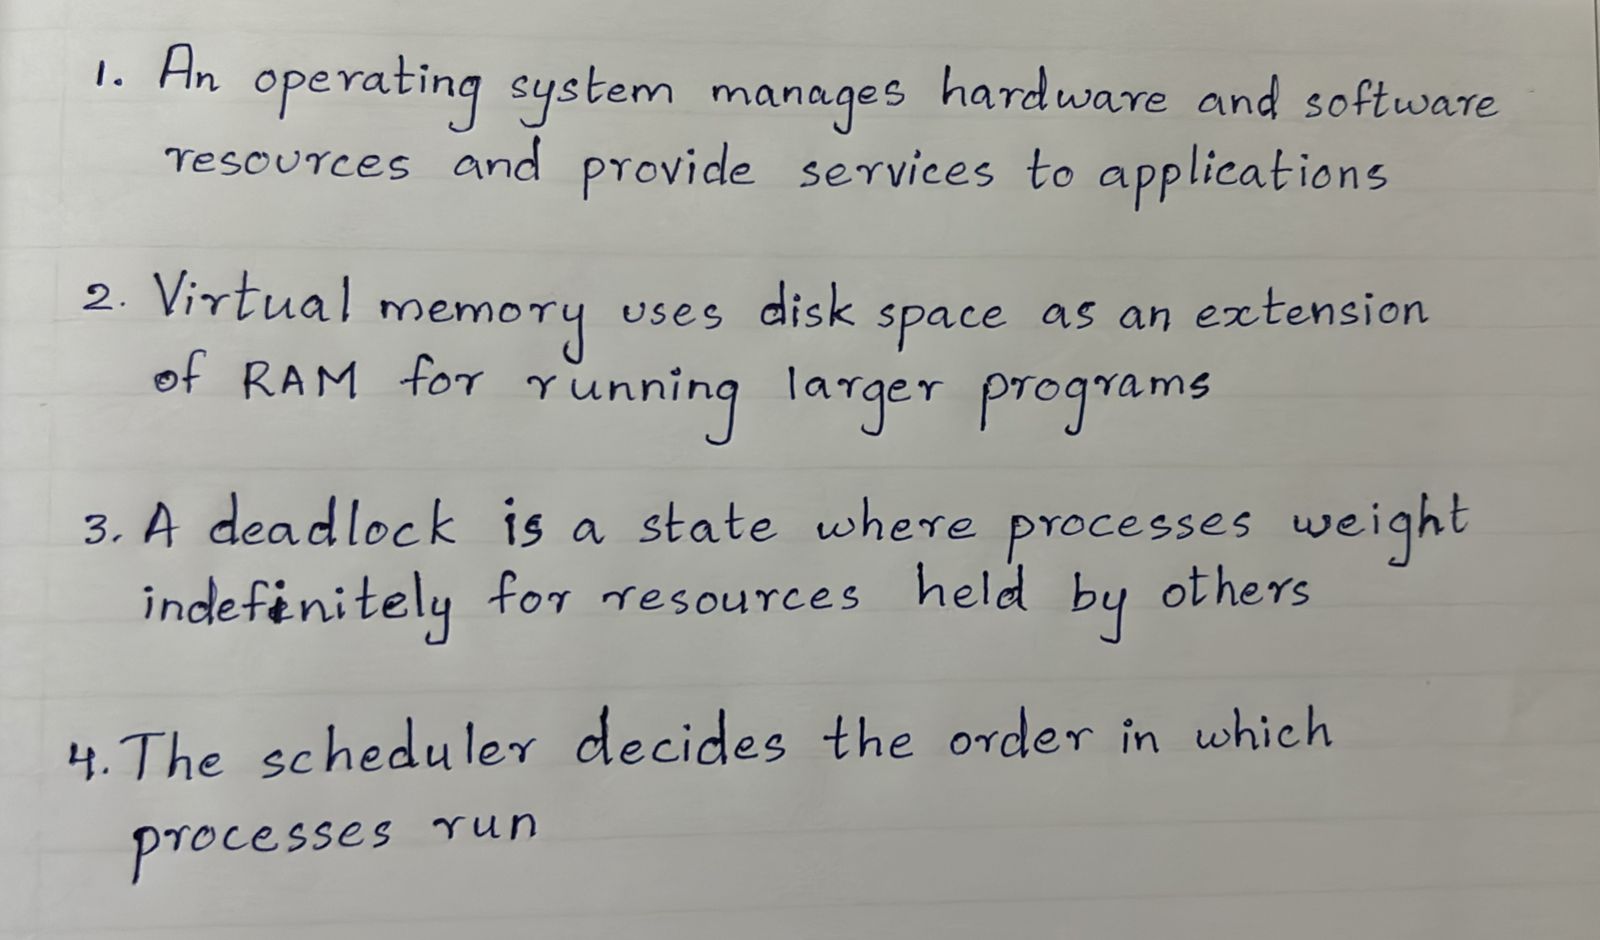 1. An operating system manages hardware and software
resources and provide services to applications
2. Virtual memory uses disk space as an extension
of RAM for running larger programs
3. A deadlock is a state where processes weight
indefinitely for resources held by others
4. The scheduler decides the order in which
processes run